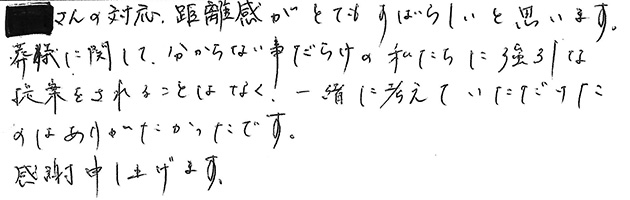 さんの対応、距離感がとてもすばらしいと思います。
葬儀に関して、分からない事だらけの私たちに強引な
提案をされることはなく、一緒に考えていただけた
のはありがたかったです。
感謝申し上げます。